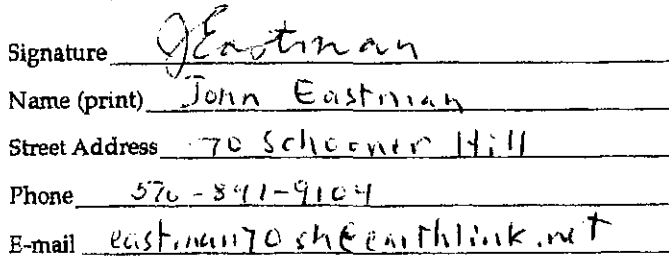 Signature JEastman
Name (print) John Eastman
Street Address 70 Schooner Hill
Phone
E-mail eastman70sh@earthlink.net